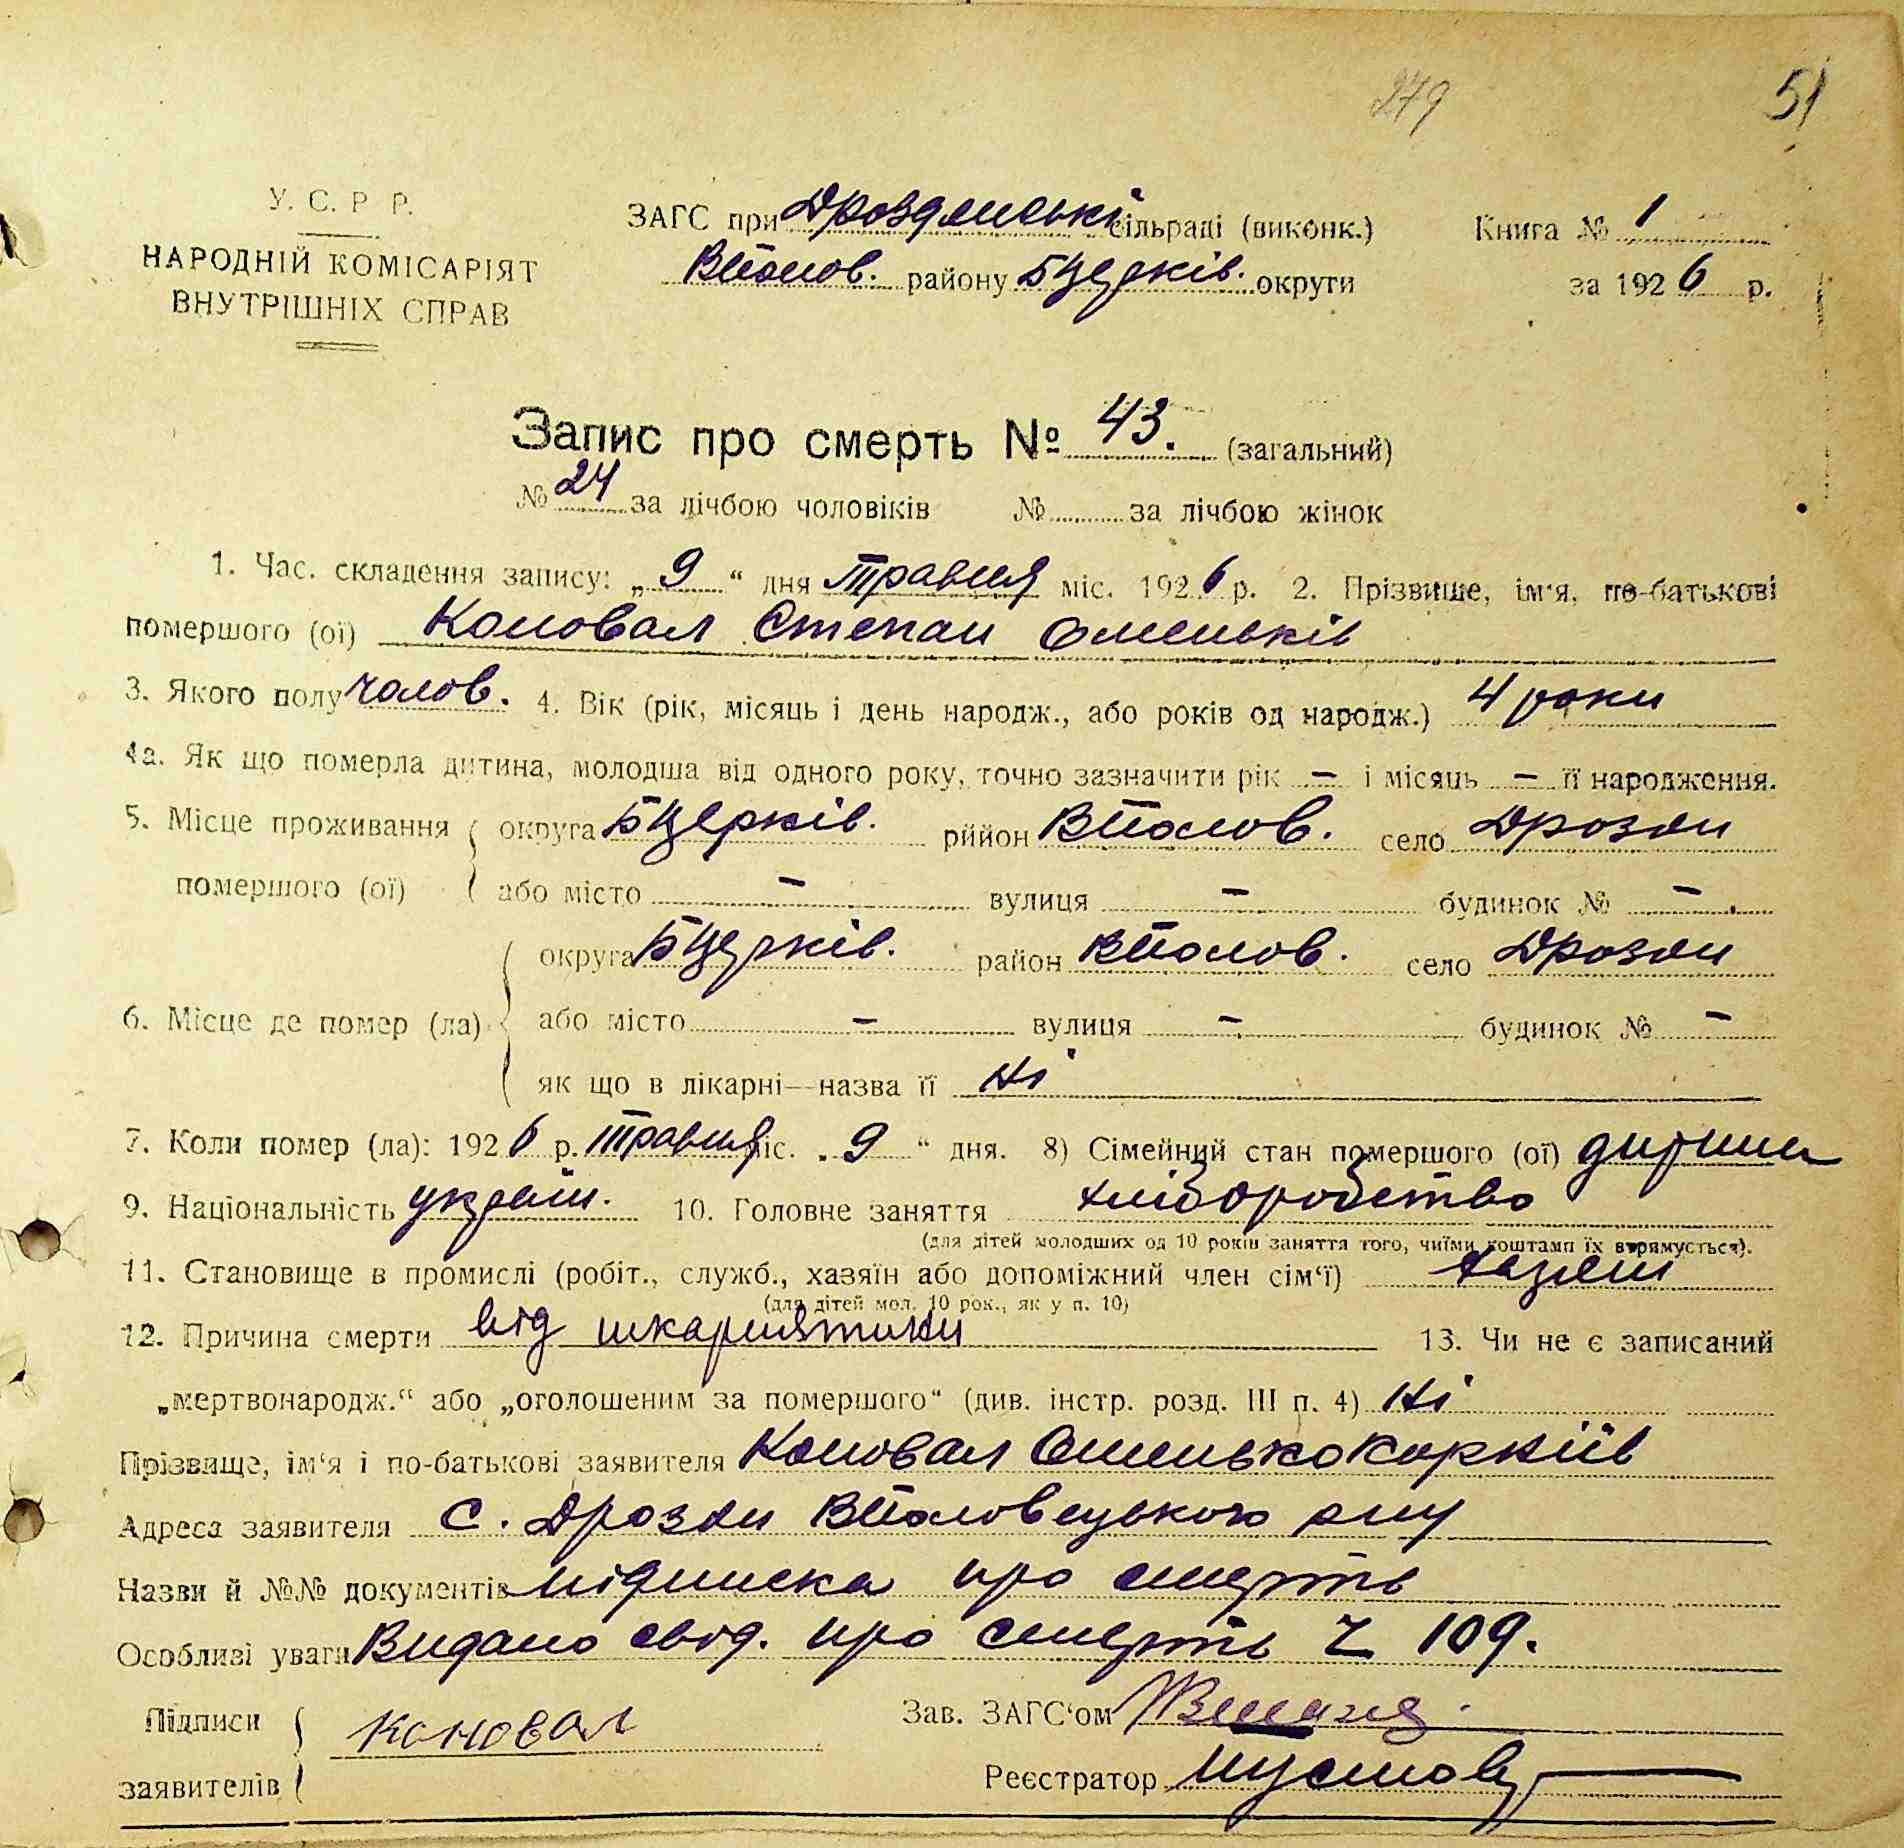 279 51
У. С. Р Р.
НАРОДНІЙ КОМІСАРІЯТ
ВНУТРІШНІХ СПРАВ
ЗАГС при Дроздянські сільраді (виконк.) Книга № 1
ВПолов. району БЦерків. округи за 1926 р.
Запис про смерть № 43. (загальний)
№ 24 за лічбою чоловіків № за лічбою жінок
1. Час. складення запису: „9“ дня травня міс. 1926 р. 2. Прізвище, ім'я, по-батькові
помершого (ої) Коновал Степан Омельків
3. Якого полу чолов. 4. Вік (рік, місяць і день народж., або років од народж.) 4 роки
4а. Як що померла дитина, молодша від одного року, точно зазначити рік – і місяць – її народження.
5. Місце проживання округа БЦерків. рййон ВПолов. село Дрозди
помершого (ої) або місто – вулиця – будинок № –.
округа БЦерків. район ВПолов. село Дрозди
6. Місце де помер (ла) або місто – вулиця – будинок № –
як що в лікарні—назва її Ні
7. Коли помер (ла): 1926 р. травня міс. „9“ дня. 8) Сімейний стан помершого (ої) дитина
9. Національність україн. 10. Головне заняття хліборобство
(для дітей молодших од 10 років заняття того, чиїми коштами їх втрямується).
11. Становище в промислі (робіт., служб., хазяїн або допоміжний член сім'ї) хазяїн
(для дітей мол. 10 рок., як у п. 10)
12. Причина смерти від шкарлятини 13. Чи не є записаний
„мертвонародж.“ або „оголошеним за помершого“ (див. інстр. розд. III п. 4) Ні
Прізвище, ім'я і по-батькові заявителя Коновал Омелько Корніїв
Адреса заявителя с. Дрозди ВПоловецького р-ну
Назви й №№ документів підписка про смерть
Особлизі уваги Видано свід. про смерть Ч 109.
Підписи Коновал Зав. ЗАГС'ом
заявителів Реєстратор